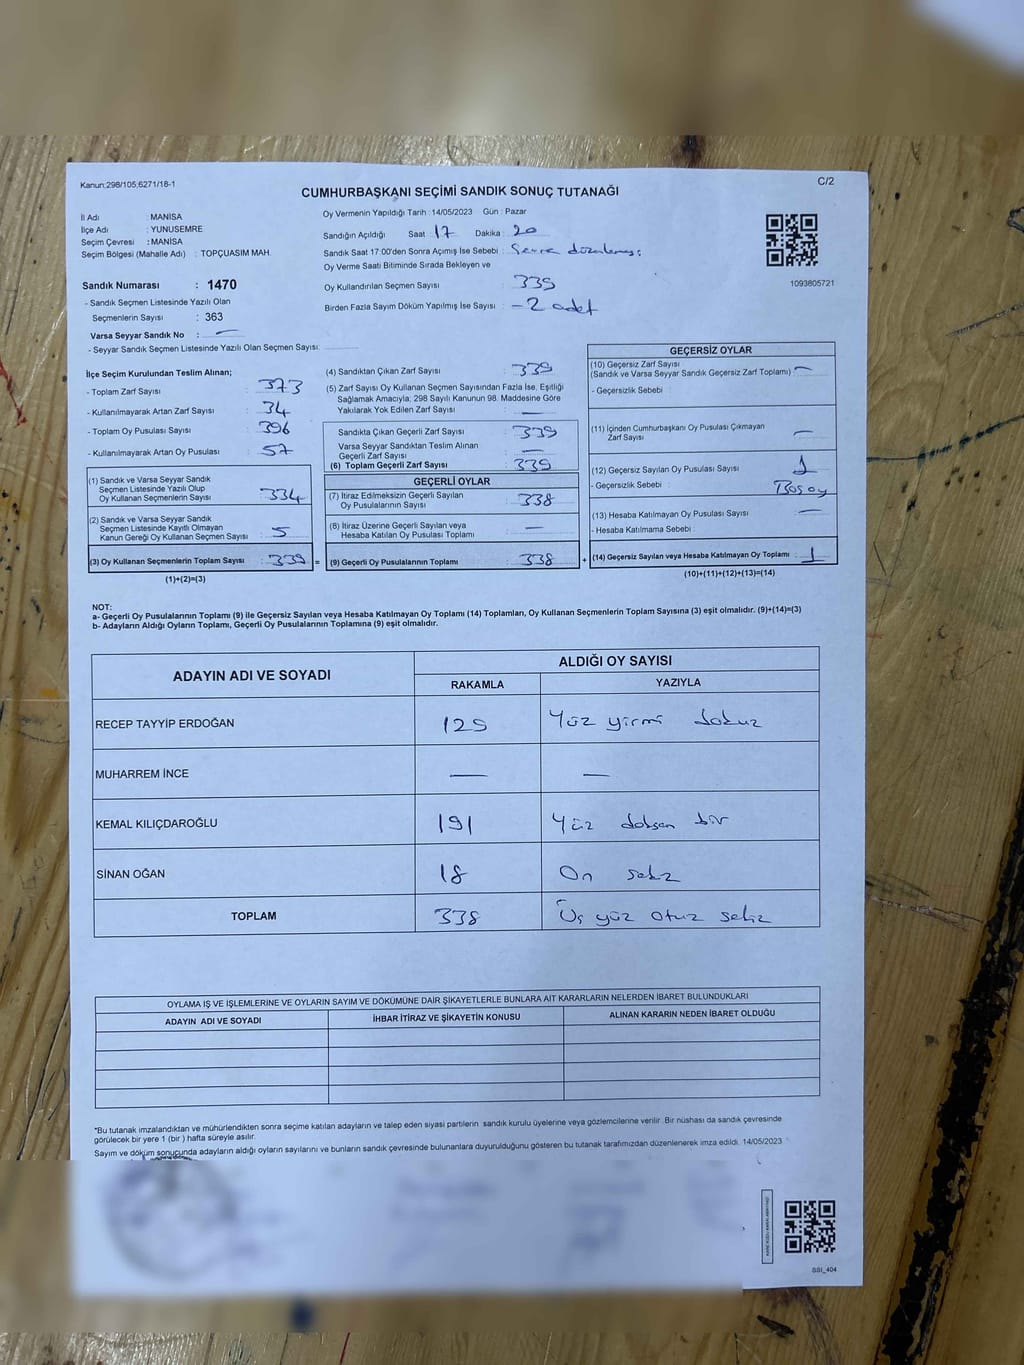 Kanun;298/105;6271/18-1
C/2
CUMHURBAŞKANI SEÇİMİ SANDIK SONUÇ TUTANAĞI
İl Adı : MANİSA
İlçe Adı : YUNUSEMRE
Seçim Çevresi : MANİSA
Seçim Bölgesi (Mahalle Adı) : TOPÇUASIM MAH.
Oy Vermenin Yapıldığı Tarih :14/05/2023 Gün : Pazar
Sandığın Açıldığı Saat 17 Dakika : 20
Sandık Saat 17:00'den Sonra Açımış İse Sebebi :
Oy Verme Saati Bitiminde Sırada Bekleyen ve
Oy Kullandırılan Seçmen Sayısı : 339
Birden Fazla Sayım Döküm Yapılmış İse Sayısı : - 2 adet
1093805721
Sandık Numarası : 1470
- Sandık Seçmen Listesinde Yazılı Olan
Seçmenlerin Sayısı : 363
Varsa Seyyar Sandık No : —
- Seyyar Sandık Seçmen Listesinde Yazılı Olan Seçmen Sayısı:
İlçe Seçim Kurulundan Teslim Alınan;
- Toplam Zarf Sayısı : 373
- Kullanılmayarak Artan Zarf Sayısı : 34
- Toplam Oy Pusulası Sayısı : 396
- Kullanılmayarak Artan Oy Pusulası : 57
(1) Sandık ve Varsa Seyyar Sandık
Seçmen Listesinde Yazılı Olup
Oy Kullanan Seçmenlerin Sayısı : 334
(2) Sandık ve Varsa Seyyar Sandık
Seçmen Listesinde Kayıtlı Olmayan
Kanun Gereği Oy Kullanan Seçmen Sayısı : 5
(3) Oy Kullanan Seçmenlerin Toplam Sayısı : 339 =
(1)+(2)=(3)
(4) Sandıktan Çıkan Zarf Sayısı : 339
(5) Zarf Sayısı Oy Kullanan Seçmen Sayısından Fazla İse, Eşitliği
Sağlamak Amacıyla; 298 Sayılı Kanunun 98. Maddesine Göre
Yakılarak Yok Edilen Zarf Sayısı : —
Sandıkta Çıkan Geçerli Zarf Sayısı : 339
Varsa Seyyar Sandıktan Teslim Alınan
Geçerli Zarf Sayısı : —
(6) Toplam Geçerli Zarf Sayısı : 339
GEÇERLİ OYLAR
(7) İtiraz Edilmeksizin Geçerli Sayılan
Oy Pusulalarının Sayısı : 338
(8) İtiraz Üzerine Geçerli Sayılan veya
Hesaba Katılan Oy Pusulası Toplamı : —
(9) Geçerli Oy Pusulalarının Toplamı : 338 +
GEÇERSİZ OYLAR
(10) Geçersiz Zarf Sayısı
(Sandık ve Varsa Seyyar Sandık Geçersiz Zarf Toplamı) : —
- Geçersizlik Sebebi :
(11) İçinden Cumhurbaşkanı Oy Pusulası Çıkmayan
Zarf Sayısı : —
(12) Geçersiz Sayılan Oy Pusulası Sayısı : 1
- Geçersizlik Sebebi : Boş oy
(13) Hesaba Katılmayan Oy Pusulası Sayısı : —
- Hesaba Katılmama Sebebi :
(14) Geçersiz Sayılan veya Hesaba Katılmayan Oy Toplamı : 1
(10)+(11)+(12)+(13)=(14)
NOT:
a- Geçerli Oy Pusulalarının Toplamı (9) ile Geçersiz Sayılan veya Hesaba Katılmayan Oy Toplamı (14) Toplamları, Oy Kullanan Seçmenlerin Toplam Sayısına (3) eşit olmalıdır. (9)+(14)=(3)
b- Adayların Aldığı Oyların Toplamı, Geçerli Oy Pusulalarının Toplamına (9) eşit olmalıdır.
ADAYIN ADI VE SOYADI ALDIĞI OY SAYISI
RAKAMLA YAZIYLA
RECEP TAYYİP ERDOĞAN 129 Yüz yirmi dokuz
MUHARREM İNCE — —
KEMAL KILIÇDAROĞLU 191 Yüz doksan bir
SİNAN OĞAN 18 On sekiz
TOPLAM 338 Üç yüz otuz sekiz
OYLAMA İŞ VE İŞLEMLERİNE VE OYLARIN SAYIM VE DÖKÜMÜNE DAİR ŞİKAYETLERLE BUNLARA AİT KARARLARIN NELERDEN İBARET BULUNDUKLARI
ADAYIN ADI VE SOYADI İHBAR İTİRAZ VE ŞİKAYETİN KONUSU ALINAN KARARIN NEDEN İBARET OLDUĞU
*Bu tutanak imzalandıktan ve mühürlendikten sonra seçime katılan adayların ve talep eden siyasi partilerin sandık kurulu üyelerine veya gözlemcilerine verilir. Bir nüshası da sandık çevresinde
görülecek bir yere 1 (bir ) hafta süreyle asılır.
Sayım ve döküm sonucunda adayların aldığı oyların sayılarını ve bunların sandık çevresinde bulunanlara duyurulduğunu gösteren bu tutanak tarafımızdan düzenlenerek imza edildi. 14/05/2023
SSI_404